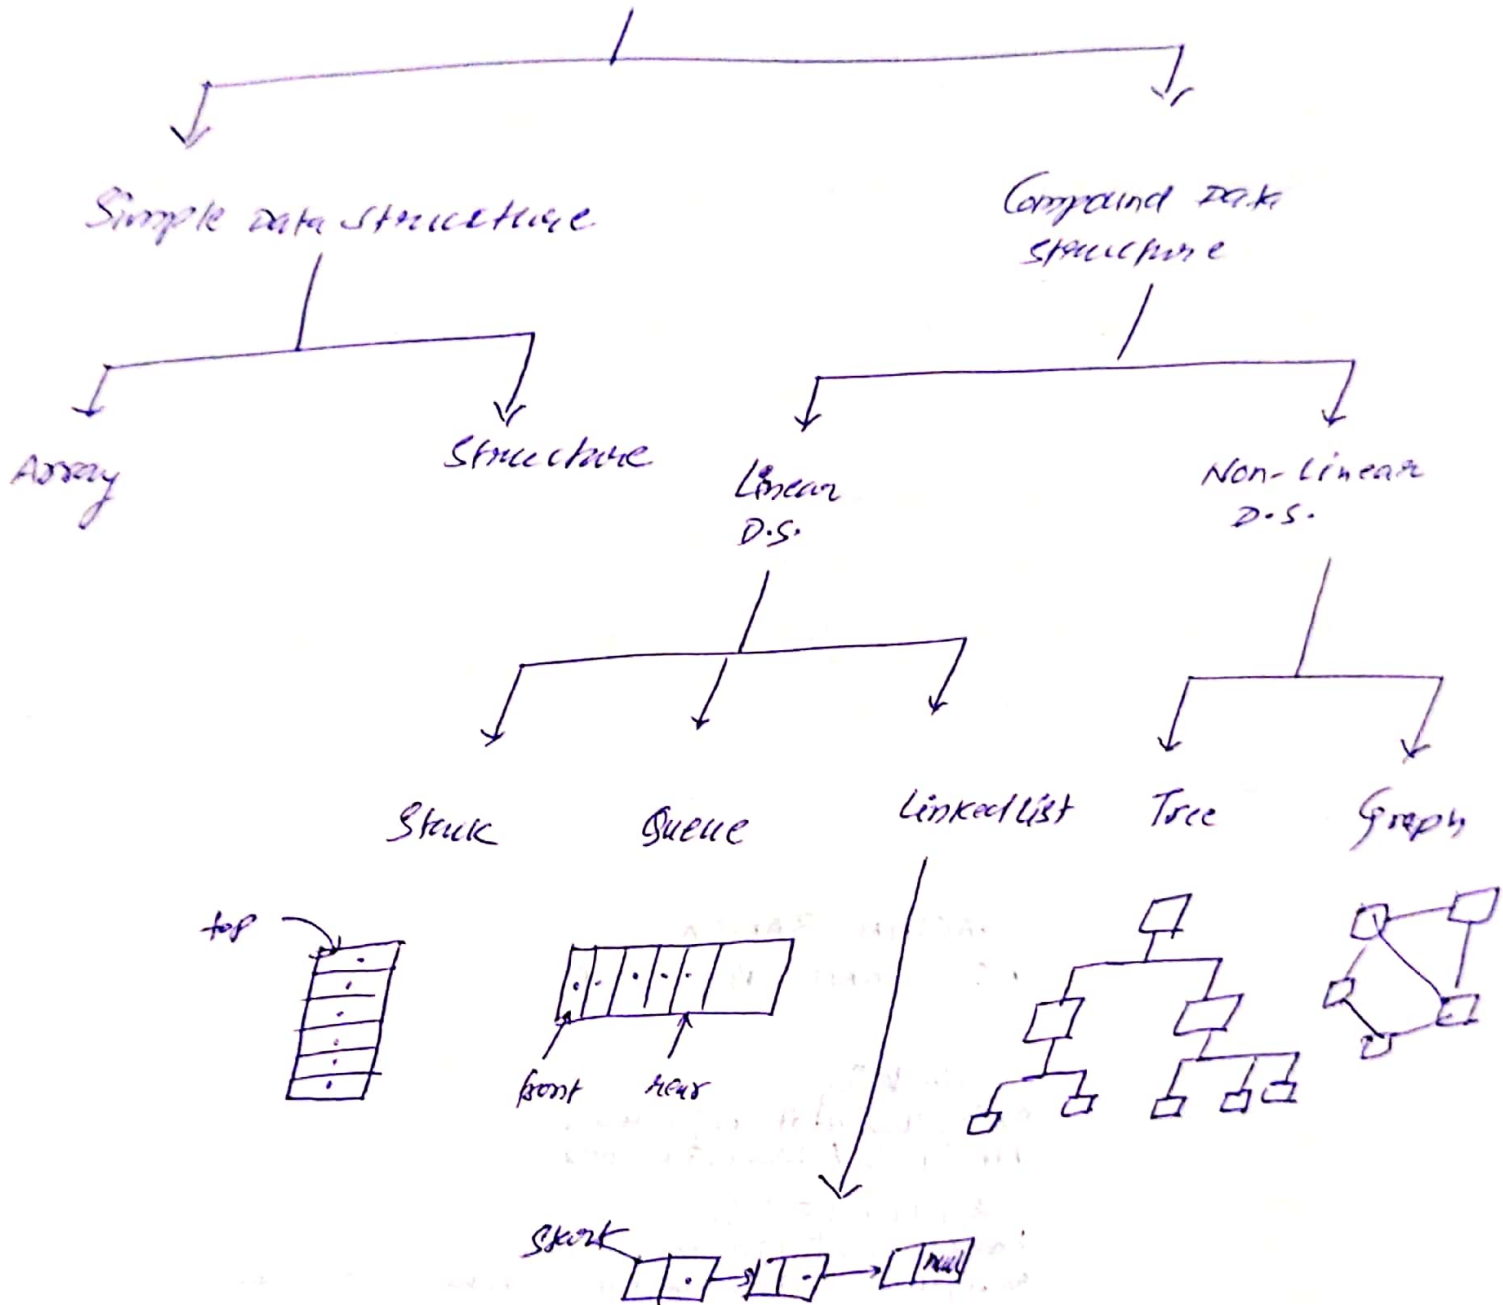 Simple Data Structure
Compound Data
Structure
Array
Structure
Linear
D.S.
Non-Linear
D.S.
Stack
Queue
Linked List
Tree
Graph
top
front
rear
Start
null